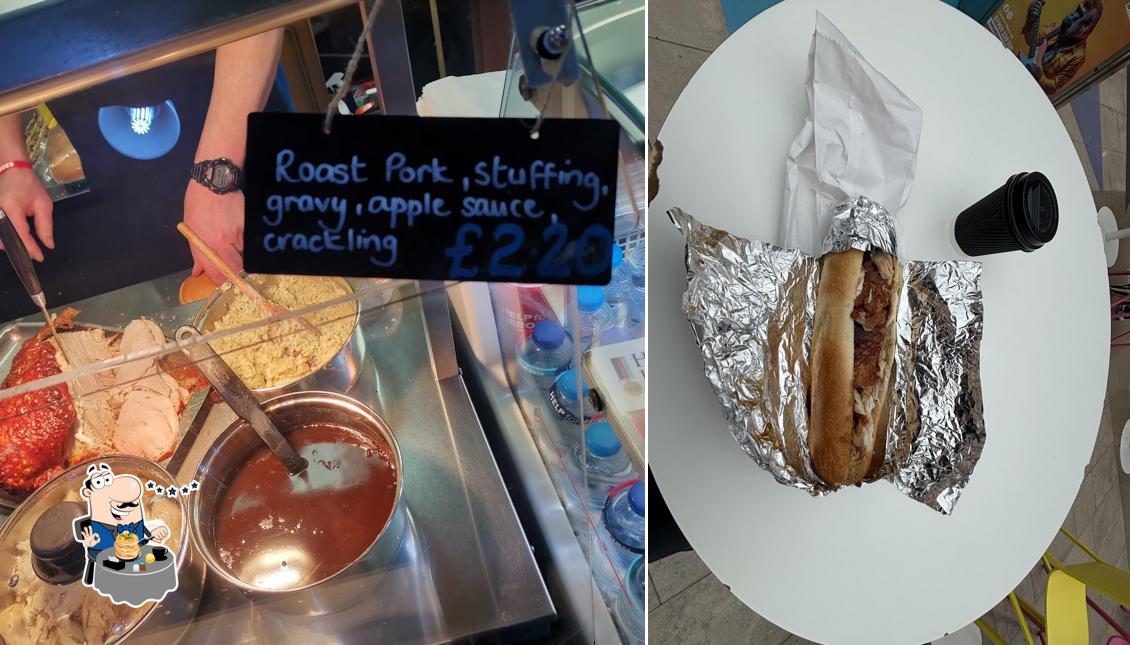 Roast Pork, stuffing,
gravy, apple sauce,
crackling £2.20
HELP for
HELP for